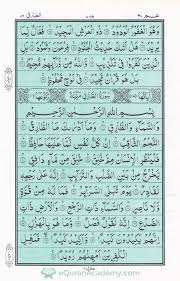 وَهُوَ الْغَفُورُ الْوَدُودُ ۝ ذُو الْعَرْشِ الْمَجِيدُ ۝ فَعَّالٌ لِّمَا
يُرِيدُ ۝ هَلْ أَتٰىكَ حَدِيثُ الْجُنُودِ ۝ فِرْعَوْنَ وَثَمُودَ ۝ بَلِ
الَّذِينَ كَفَرُوا فِي تَكْذِيبٍ ۝ وَّاللّٰهُ مِنْ وَّرَآئِهِمْ مُّحِيطٌ ۝
بَلْ هُوَ قُرْاٰنٌ مَّجِيدٌ ۝ فِي لَوْحٍ مَّحْفُوظٍ ۝
سُورَةُ الطَّارِقِ مَكِّيَّةٌ
بِسْمِ اللّٰهِ الرَّحْمٰنِ الرَّحِيمِ
وَالسَّمَآءِ وَالطَّارِقِ ۝ وَمَآ أَدْرٰىكَ مَا الطَّارِقُ ۝
النَّجْمُ الثَّاقِبُ ۝ إِنْ كُلُّ نَفْسٍ لَّمَّا عَلَيْهَا حَافِظٌ ۝
فَلْيَنْظُرِ الْإِنْسَانُ مِمَّ خُلِقَ ۝ خُلِقَ مِنْ مَّآءٍ دَافِقٍ ۝
يَّخْرُجُ مِنْ بَيْنِ الصُّلْبِ وَالتَّرَآئِبِ ۝ إِنَّهُ عَلٰى رَجْعِهِ
لَقَادِرٌ ۝ يَوْمَ تُبْلَى السَّرَآئِرُ ۝ فَمَا لَهُ مِنْ قُوَّةٍ وَّلَا
نَاصِرٍ ۝ وَالسَّمَآءِ ذَاتِ الرَّجْعِ ۝ وَالْأَرْضِ ذَاتِ
الصَّدْعِ ۝ إِنَّهُ لَقَوْلٌ فَصْلٌ ۝ وَّمَا هُوَ بِالْهَزْلِ ۝
إِنَّهُمْ يَكِيدُونَ كَيْدًا ۝ وَّأَكِيدُ كَيْدًا ۝ فَمَهِّلِ
الْكٰفِرِينَ أَمْهِلْهُمْ رُوَيْدًا ۝
eQuranAcademy.com